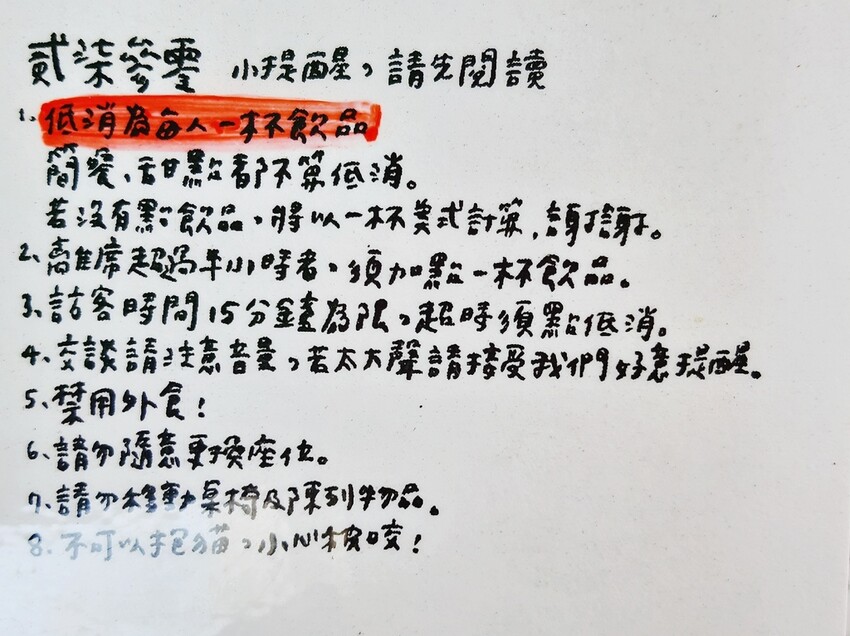 貳柒參零 小提醒,請先閱讀
1、低消為每人一杯飲品
簡餐、甜點都不算低消。
若沒有點飲品,將以一杯美式計算,謝謝。
2、離席超過半小時者,須加點一杯飲品。
3、訪客時間15分鐘為限,超時須點低消。
4、交談請注意音量,若太大聲請接受我們好意提醒。
5、禁用外食!
6、請勿隨意更換座位。
7、請勿移動桌椅及陳列物品。
8、不可以抱貓,小心被咬!